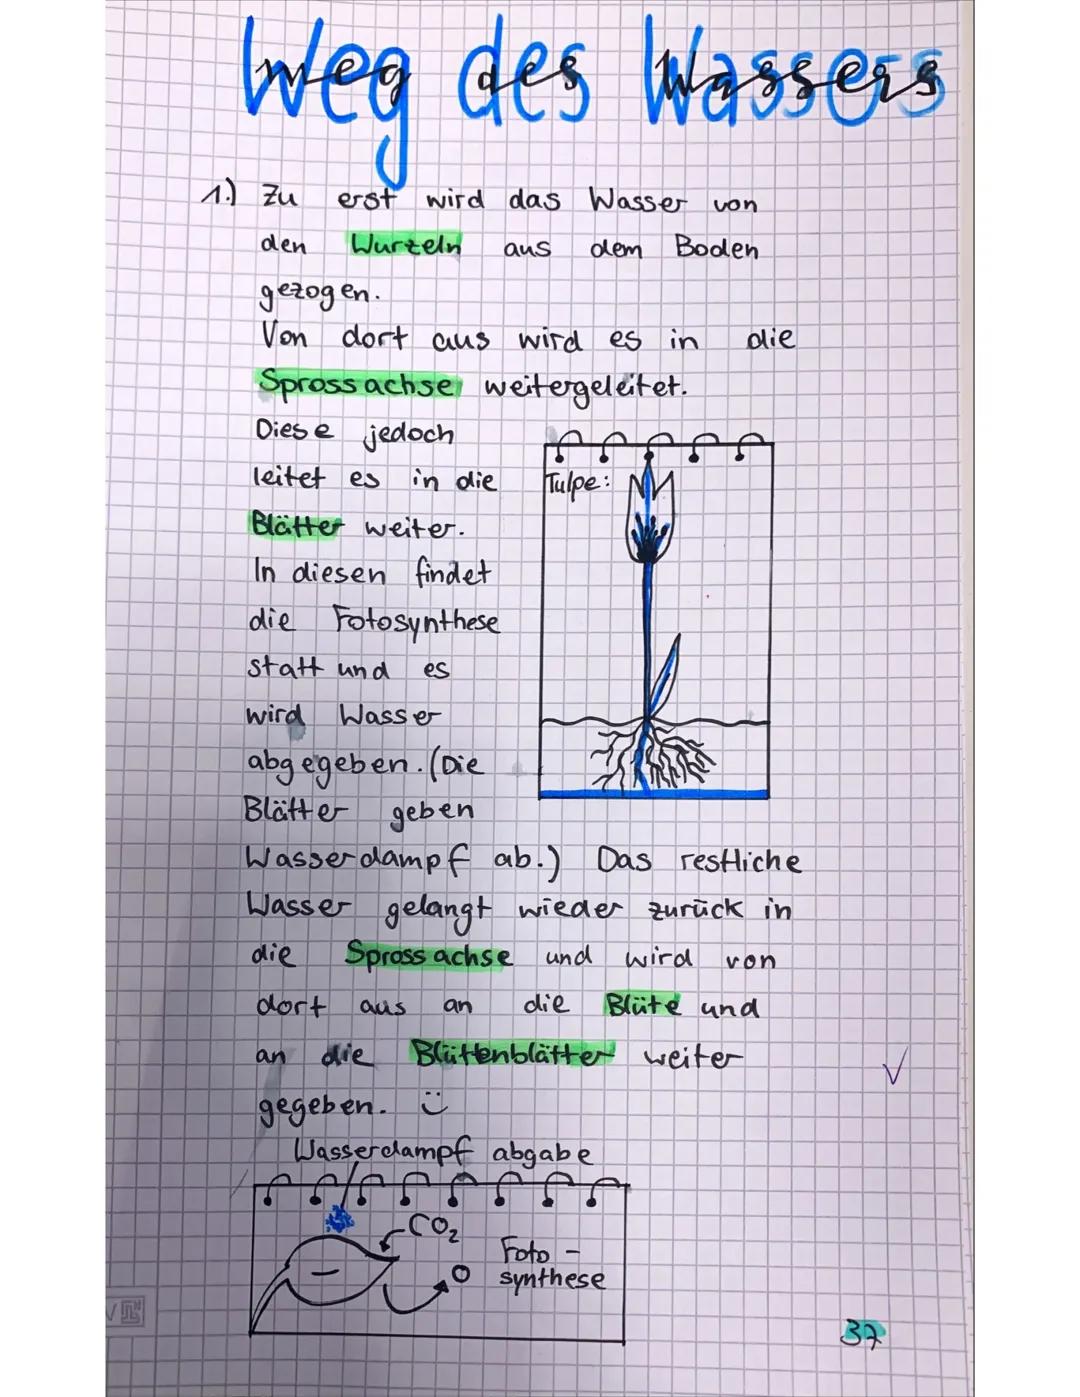 Weg des Wassers
1.) Zu erst wird das Wasser von
den Wurzeln aus dem Boden
gezogen.
Von dort aus wird es in die
Sprossachse weitergeleitet.
Diese jedoch
leitet es in die
Blätter weiter.
In diesen findet
die Fotosynthese
statt und es
wird Wasser
abgegeben. (Die
Blätter geben
Wasserdampf ab.) Das restliche
Wasser gelangt wieder zurück in
die Sprossachse und wird von
dort aus an die Blüte und
an die Blüttenblätter weiter
gegeben. ü
Tulpe:
Wasserdampf abgabe
CO₂
O
Foto-
synthese
37